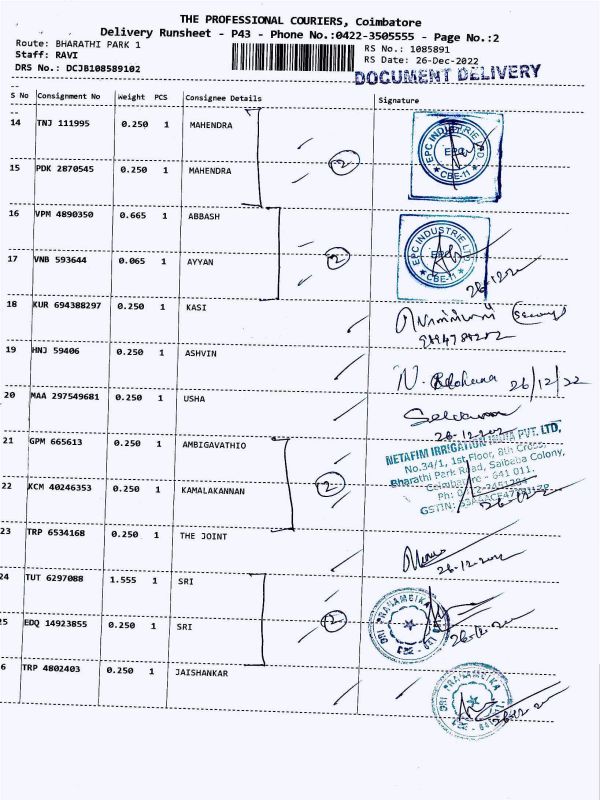 THE PROFESSIONAL COURIERS, Coimbatore
Delivery Runsheet - P43 - Phone No.:0422-3505555 - Page No.:2
Route: BHARATHI PARK 1
Staff: RAVI
DRS No.: DCJB108589102
RS No.: 1085891
RS Date: 26-Dec-2022
DOCUMENT DELIVERY
S No Consignment No Weight PCS Consignee Details Signature
14 TNJ 111995 0.250 1 MAHENDRA
EPC INDUSTRIE LTD
CBE-11
15 PDK 2870545 0.250 1 MAHENDRA
2
16 VPM 4890350 0.665 1 ABBASH
EPC INDUSTRIE LTD
CBE-11
17 VNB 593644 0.065 1 AYYAN
2
26-12-22
18 KUR 694388297 0.250 1 KASI
19 HNJ 59406 0.250 1 ASHVIN
26/12/22
20 MAA 297549681 0.250 1 USHA
21 GPM 665613 0.250 1 AMBIGAVATHIO
NETAFIM IRRIGATION INDIA PVT. LTD,
No.34/1, 1st Floor, 8th Cross,
Bharathi Park Road, Saibaba Colony,
Coimbatore - 641 011.
22 KCM 40246353 0.250 1 KAMALAKANNAN
2
23 TRP 6534168 0.250 1 THE JOINT
24 TUT 6297088 1.555 1 SRI
SRI PRANAMEIKA
25 EDQ 14923855 0.250 1 SRI
2
6 TRP 4802403 0.250 1 JAISHANKAR
SRI PRANAMEIKA